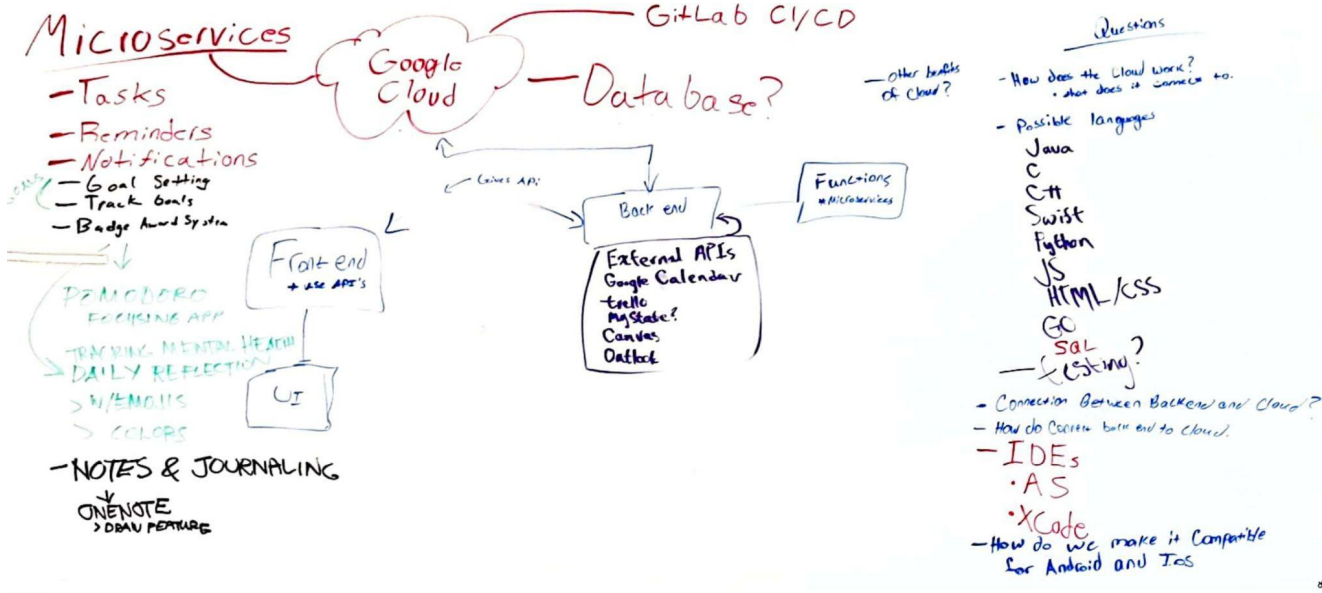 Microservices
- Tasks
- Reminders
- Notifications
- Goal Setting
- Track Goals
- Badge Award System
POMODORO
FOCUSING APP
TRACKING MENTAL HEALTH
DAILY REFLECTION
> W/EMOJIS
> COLORS
- NOTES & JOURNALING
ONENOTE
> DRAW FEATURE
Google
Cloud
- GitLab CI/CD
- Database?
- other benfits
of Cloud?
Gives API
Front end
+ use API's
UI
Back end
External APIs
Google Calendar
trello
MyState?
Canvas
Outlook
Functions
* Microservices
Questions
- How does the Cloud work?
• what does it connect to.
- Possible languages
Java
C
C++
Swift
Python
JS
HTML/CSS
GO
SQL
- testing?
- Connection Between Backend and Cloud?
- How do Connect back end to Cloud.
- IDEs
• AS
• XCode
- How do we make it Compatible
for Android and Ios